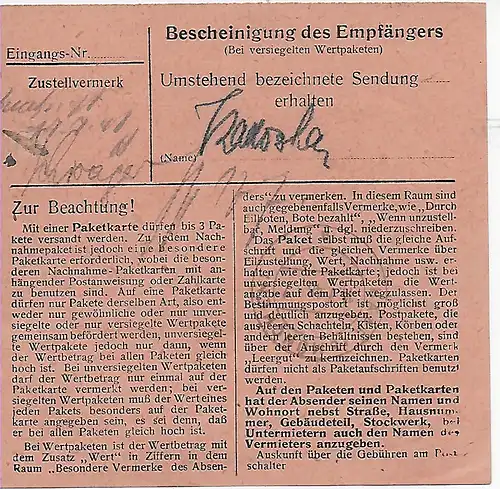 Bescheinigung des Empfängers
(Bei versiegelten Wertpaketen)
Eingangs-Nr.
Zustellvermerk
Umstehend bezeichnete Sendung
erhalten
(Name)
Zur Beachtung!
Mit einer Paketkarte dürfen bis 3 Pa-
kete versandt werden. Zu jedem Nach-
nahmepaket ist jedoch eine besondere
Paketkarte erforderlich, wobei die beson-
deren Nachnahme-Paketkarten mit an-
hängender Postanweisung oder Zahlkarte
zu benutzen sind. Auf eine Paketkarte
dürfen nur Pakete derselben Art, also ent-
weder nur gewöhnliche oder nur unver-
siegelte oder nur versiegelte Wertpakete
gemeinsam befördert werden, unversiegelte
Wertpakete jedoch nur dann, wenn
der Wertbetrag bei allen Paketen gleich
hoch ist. Bei unversiegelten Wertpaketen
darf der Wertbetrag nur einmal auf der
Paketkarte vermerkt werden; bei ver-
siegelten Wertpaketen muß der Wert eines
jeden Pakets besonders auf der Paket-
karte angegeben sein, es sei denn, daß
er bei allen Paketen gleich hoch ist.
Bei Wertpaketen ist der Wertbetrag mit
dem Zusatz „Wert" in Ziffern in dem
Raum „Besondere Vermerke des Absen-
ders" zu vermerken. In diesem Raum sind
auch gegebenenfalls Vermerke, wie „Durch
Eilboten, Bote bezahlt", „Wenn unzustell-
bar, Meldung" u. dgl. niederzuschreiben.
Das Paket selbst muß die gleiche Auf-
schrift und die gleichen Vermerke über
Eilzustellung, Wert, Nachnahme usw. er-
halten wie die Paketkarte; jedoch ist bei
unversiegelten Wertpaketen die Wert-
angabe auf dem Paket wegzulassen. Der
Bestimmungspostort ist möglichst groß
und deutlich anzugeben. Postpakete, die
aus leeren Schachteln, Kisten, Körben oder
andern leeren Behältnissen bestehen, sind
über der Anschrift durch den Vermerk
„Leergut" zu kennzeichnen. Paketkarten
dürfen nicht als Paketaufschriften benutzt
werden.
Auf den Paketen und Paketkarten
hat der Absender seinen Namen und
Wohnort nebst Straße, Hausnum-
mer, Gebäudeteil, Stockwerk, bei
Untermietern auch den Namen des
Vermieters anzugeben.
Auskunft über die Gebühren am Post-
schalter